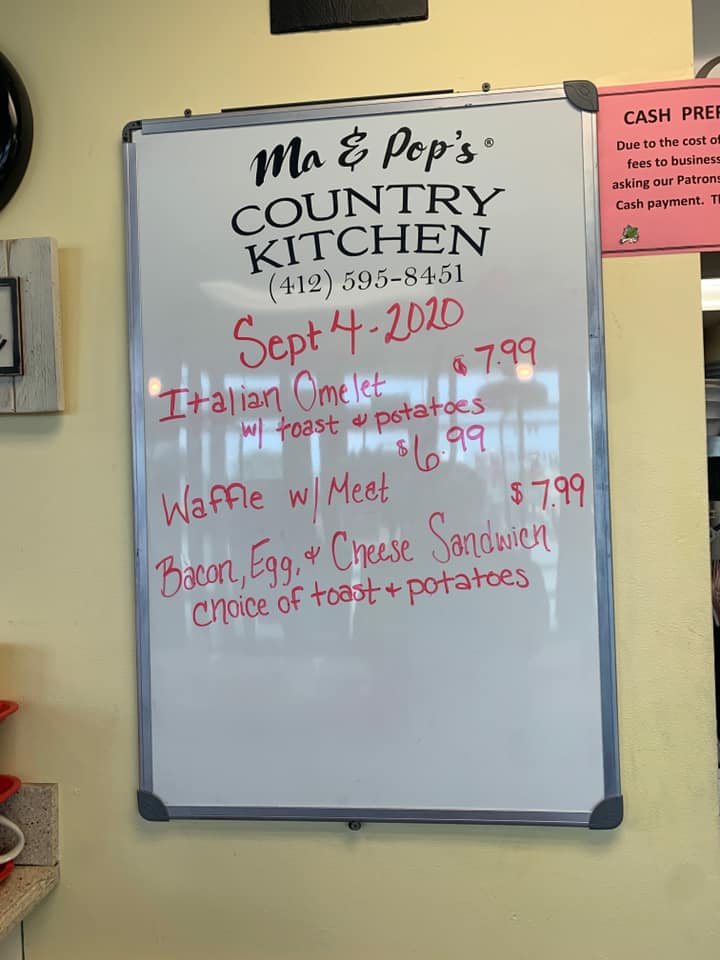 Ma & Pop's®
COUNTRY
KITCHEN
(412) 595-8451
Sept 4-2020
Italian Omelet $7.99
w/ toast & potatoes
Waffle w/ Meat $6.99
Bacon, Egg, & Cheese Sandwich $7.99
choice of toast + potatoes
CASH
Due to the cost of
fees to business
asking our Patrons
Cash payment.